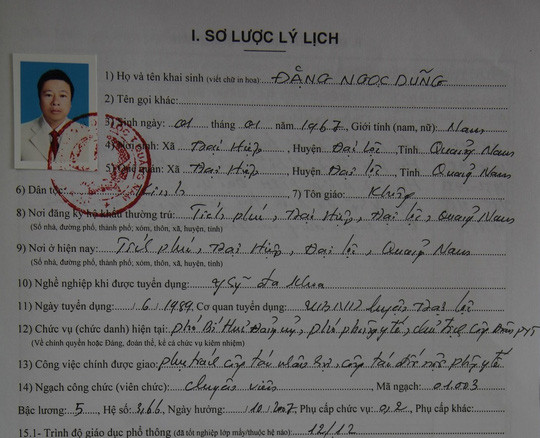 I. SƠ LƯỢC LÝ LỊCH
1) Họ và tên khai sinh (viết chữ in hoa): ĐẶNG NGỌC DŨNG
2) Tên gọi khác:
3) Sinh ngày: 01 tháng 01 năm 1967, Giới tính (nam, nữ): Nam
4) Nơi sinh: Xã Đại Hiệp, Huyện Đại Lộc, Tỉnh Quảng Nam
5) quán: Xã Đại Hiệp, Huyện Đại Lộc, Tỉnh Quảng Nam
6) Dân tộc: Kinh 7) Tôn giáo: Không
8) Nơi đăng ký hộ khẩu thường trú: Tích Phú, Đại Hiệp, Đại Lộc, Quảng Nam
(Số nhà, đường phố, thành phố; xóm, thôn, xã, huyện, tỉnh)
9) Nơi ở hiện nay: Tích Phú, Đại Hiệp, Đại Lộc, Quảng Nam
(Số nhà, đường phố, thành phố; xóm, thôn, xã, huyện, tỉnh)
10) Nghề nghiệp khi được tuyển dụng: Y sỹ đa khoa
11) Ngày tuyển dụng: /6/1989 Cơ quan tuyển dụng: UBND huyện Đại Lộc
12) Chức vụ (chức danh) hiện tại: Phó Bí thư Đảng uỷ, phó phòng y tế, chủ tịch công đoàn PYT
(Về chính quyền hoặc Đảng, đoàn thể, kể cả chức vụ kiêm nhiệm)
13) Công việc chính được giao: phụ trách công tác nhân sự, công tác phòng y tế
14) Ngạch công chức (viên chức): chuyên viên Mã ngạch: 01.003
Bậc lương: 5 Hệ số: 3,66 Ngày hưởng: /10/2007 Phụ cấp chức vụ: 0,2 Phụ cấp khác:
15.1- Trình độ giáo dục phổ thông (đã tốt nghiệp lớp mấy/thuộc hệ nào): 12/12